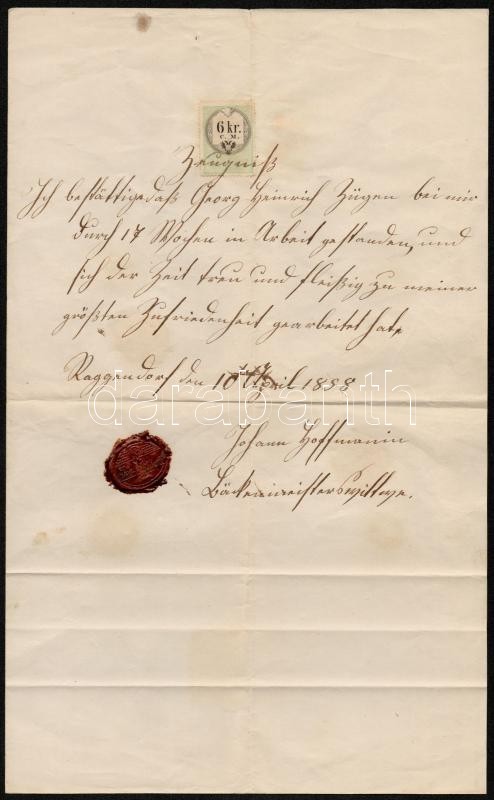 6 kr.
C. M.
Zeugniß
Ich bestättige daß Georg Heinrich Zügen bei mir
durch 17 Wochen in Arbeit gestanden, und
sich der Zeit treu und fleißig zu meiner
größten Zufriedenheit gearbeitet hat.
Raggendorf den 10 April 1858
darabanth
Johann Hoffmanin
Bäckenmeisterswittwe.